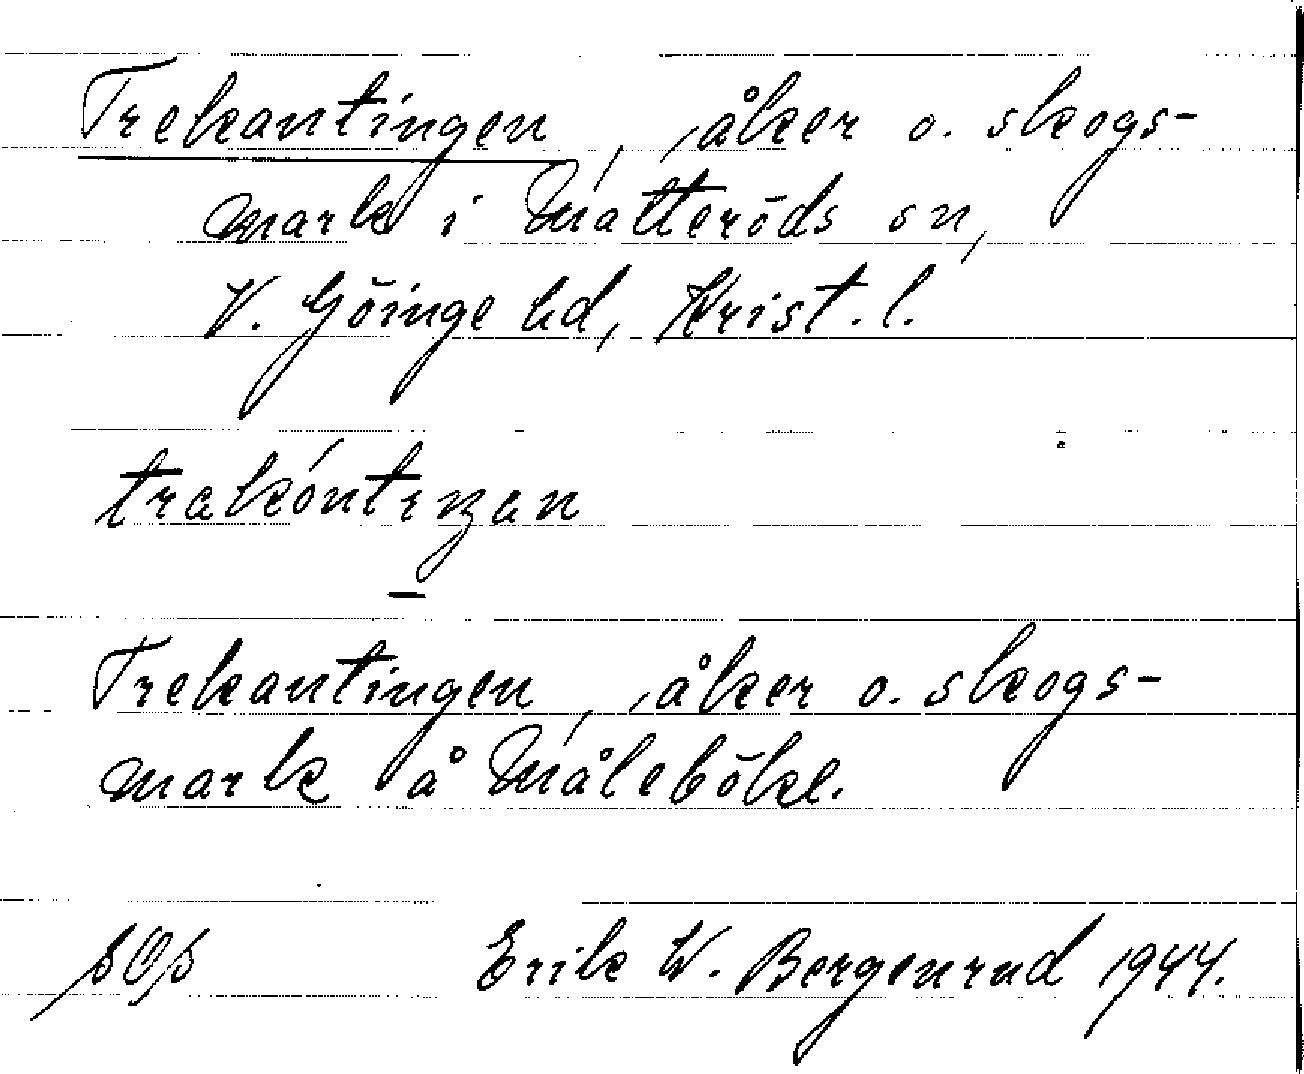 Trekantingen, åker o. skogs-
mark i Matteröds sn,
V. Göinge hd, Krist. l.
Trekantingen, åker o. skogs-
mark å Målebökl.
Erik W. Bergenrud 1944.